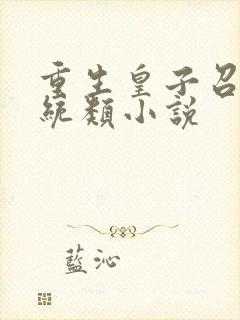 重生皇子召
統類小説
藍沁